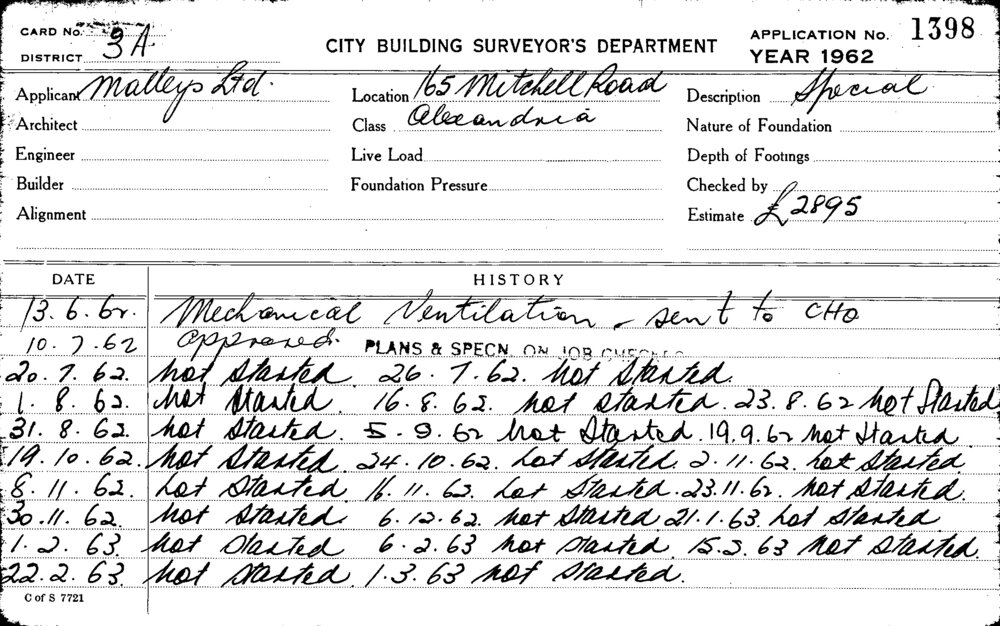 CARD No.
DISTRICT 3A
CITY BUILDING SURVEYOR'S DEPARTMENT
APPLICATION No. 1398
YEAR 1962
Applicant Malleys Ltd. Location 165 Mitchell Road Description Special
Architect Class Alexandria Nature of Foundation
Engineer Live Load Depth of Footings
Builder Foundation Pressure Checked by
Alignment Estimate £2895
DATE HISTORY
13.6.62. Mechanical Ventilation - sent to CHO
10.7.62 approved. PLANS & SPECN. ON JOB
20.7.62. Not Started. 26.7.62. Not Started.
1.8.62. Not Started. 16.8.62. Not Started. 23.8.62 Not Started
31.8.62. Not Started. 5.9.62 Not Started. 19.9.62 Not Started
19.10.62. Not Started. 24.10.62. Not Started. 2.11.62. Not Started.
8.11.62. Not Started. 16.11.62. Not Started. 23.11.62. Not Started.
30.11.62. Not Started. 6.12.62. Not Started 21.1.63. Not Started.
1.2.63. Not Started. 6.2.63 Not Started. 15.2.63 Not Started.
22.2.63. Not Started. 1.3.63 Not Started.
C of S 7721